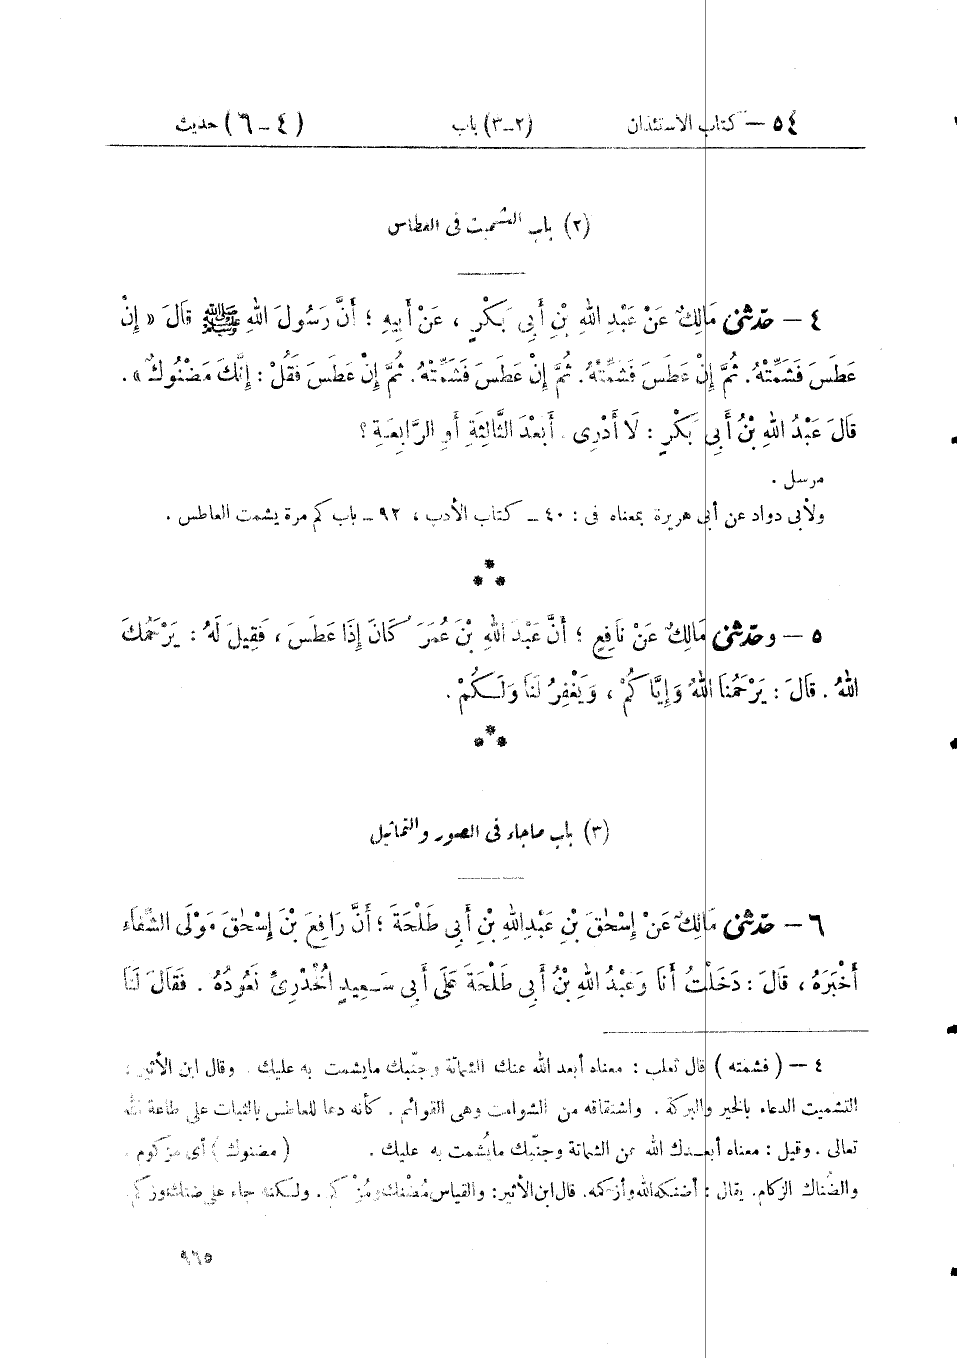 ٥٤ – كتاب الاستئذان (٢–٣) باب (٤–٦) حديث
(٢) باب التشميت فى العطاس
٤ – حدّثنى مَالِكٌ عَنْ عَبْدِ اللهِ بْنِ أَبِى بَكْرٍ ، عَنْ أَبِيهِ ؛ أَنَّ رَسُولَ اللهِ ﷺ قَالَ « إِنْ
عَطَسَ فَشَمِّتْهُ. ثُمَّ إِنْ عَطَسَ فَشَمِّتْهُ. ثُمَّ إِنْ عَطَسَ فَشَمِّتْهُ. ثُمَّ إِنْ عَطَسَ فَقُلْ : إِنَّكَ مَضْنُوكٌ » .
قَالَ عَبْدُ اللهِ بْنُ أَبِى بَكْرٍ : لَا أَدْرِى . أَبَعْدَ الثَّالِثَةِ أَوِ الرَّابِعَةِ ؟
مرسل .
ولأبى دواد عن أبى هريرة بمعناه فى : ٤٠ – كتاب الأدب ، ٩٢ – باب كم مرة يشمت العاطس .
***
٥ – وحدّثنى مَالِكٌ عَنْ نَافِعٍ ؛ أَنَّ عَبْدَ اللهِ بْنَ عُمَرَ كَانَ إِذَا عَطَسَ ، فَقِيلَ لَهُ : يَرْحَمُكَ
اللهُ . قَالَ : يَرْحَمُنَا اللهُ وَإِيَّاكُمْ ، وَيَغْفِرُ لَنَا وَلَكُمْ .
***
(٣) باب ماجاء فى الصور والتماثيل
٦ – حدّثنى مَالِكٌ عَنْ إِسْحٰقَ بْنِ عَبْدِ اللهِ بْنِ أَبِى طَلْحَةَ ؛ أَنَّ رَافِعَ بْنَ إِسْحٰقَ مَوْلَى الشِّفَاءِ
أَخْبَرَهُ ، قَالَ : دَخَلْتُ أَنَا وَعَبْدُ اللهِ بْنُ أَبِى طَلْحَةَ عَلَى أَبِى سَعِيدٍ الْخُدْرِىِّ نَعُودُهُ . فَقَالَ لَنَا
٤ – ( فشمته ) قال ثعلب : معناه أبعد الله عنك الشماتة وجنّبك مايشمت به عليك . وقال ابن الأثير :
التشميت الدعاء بالخير والبركة . واشتقاقه من الشوامت وهى القوائم . كأنه دعا للعاطس بالثبات على طاعة الله
تعالى . وقيل : معناه أبعدك الله عن الشماتة وجنّبك مايُشمت به عليك . ( مضنوك ) أى مزكوم .
والضناك الزكام. يقال : أضنكه الله وأزكمه. قال ابن الأثير: والقياس مُضْنَك ومُزْكَم . ولكنه جاء على ضنك وزكم.
٩٦٥